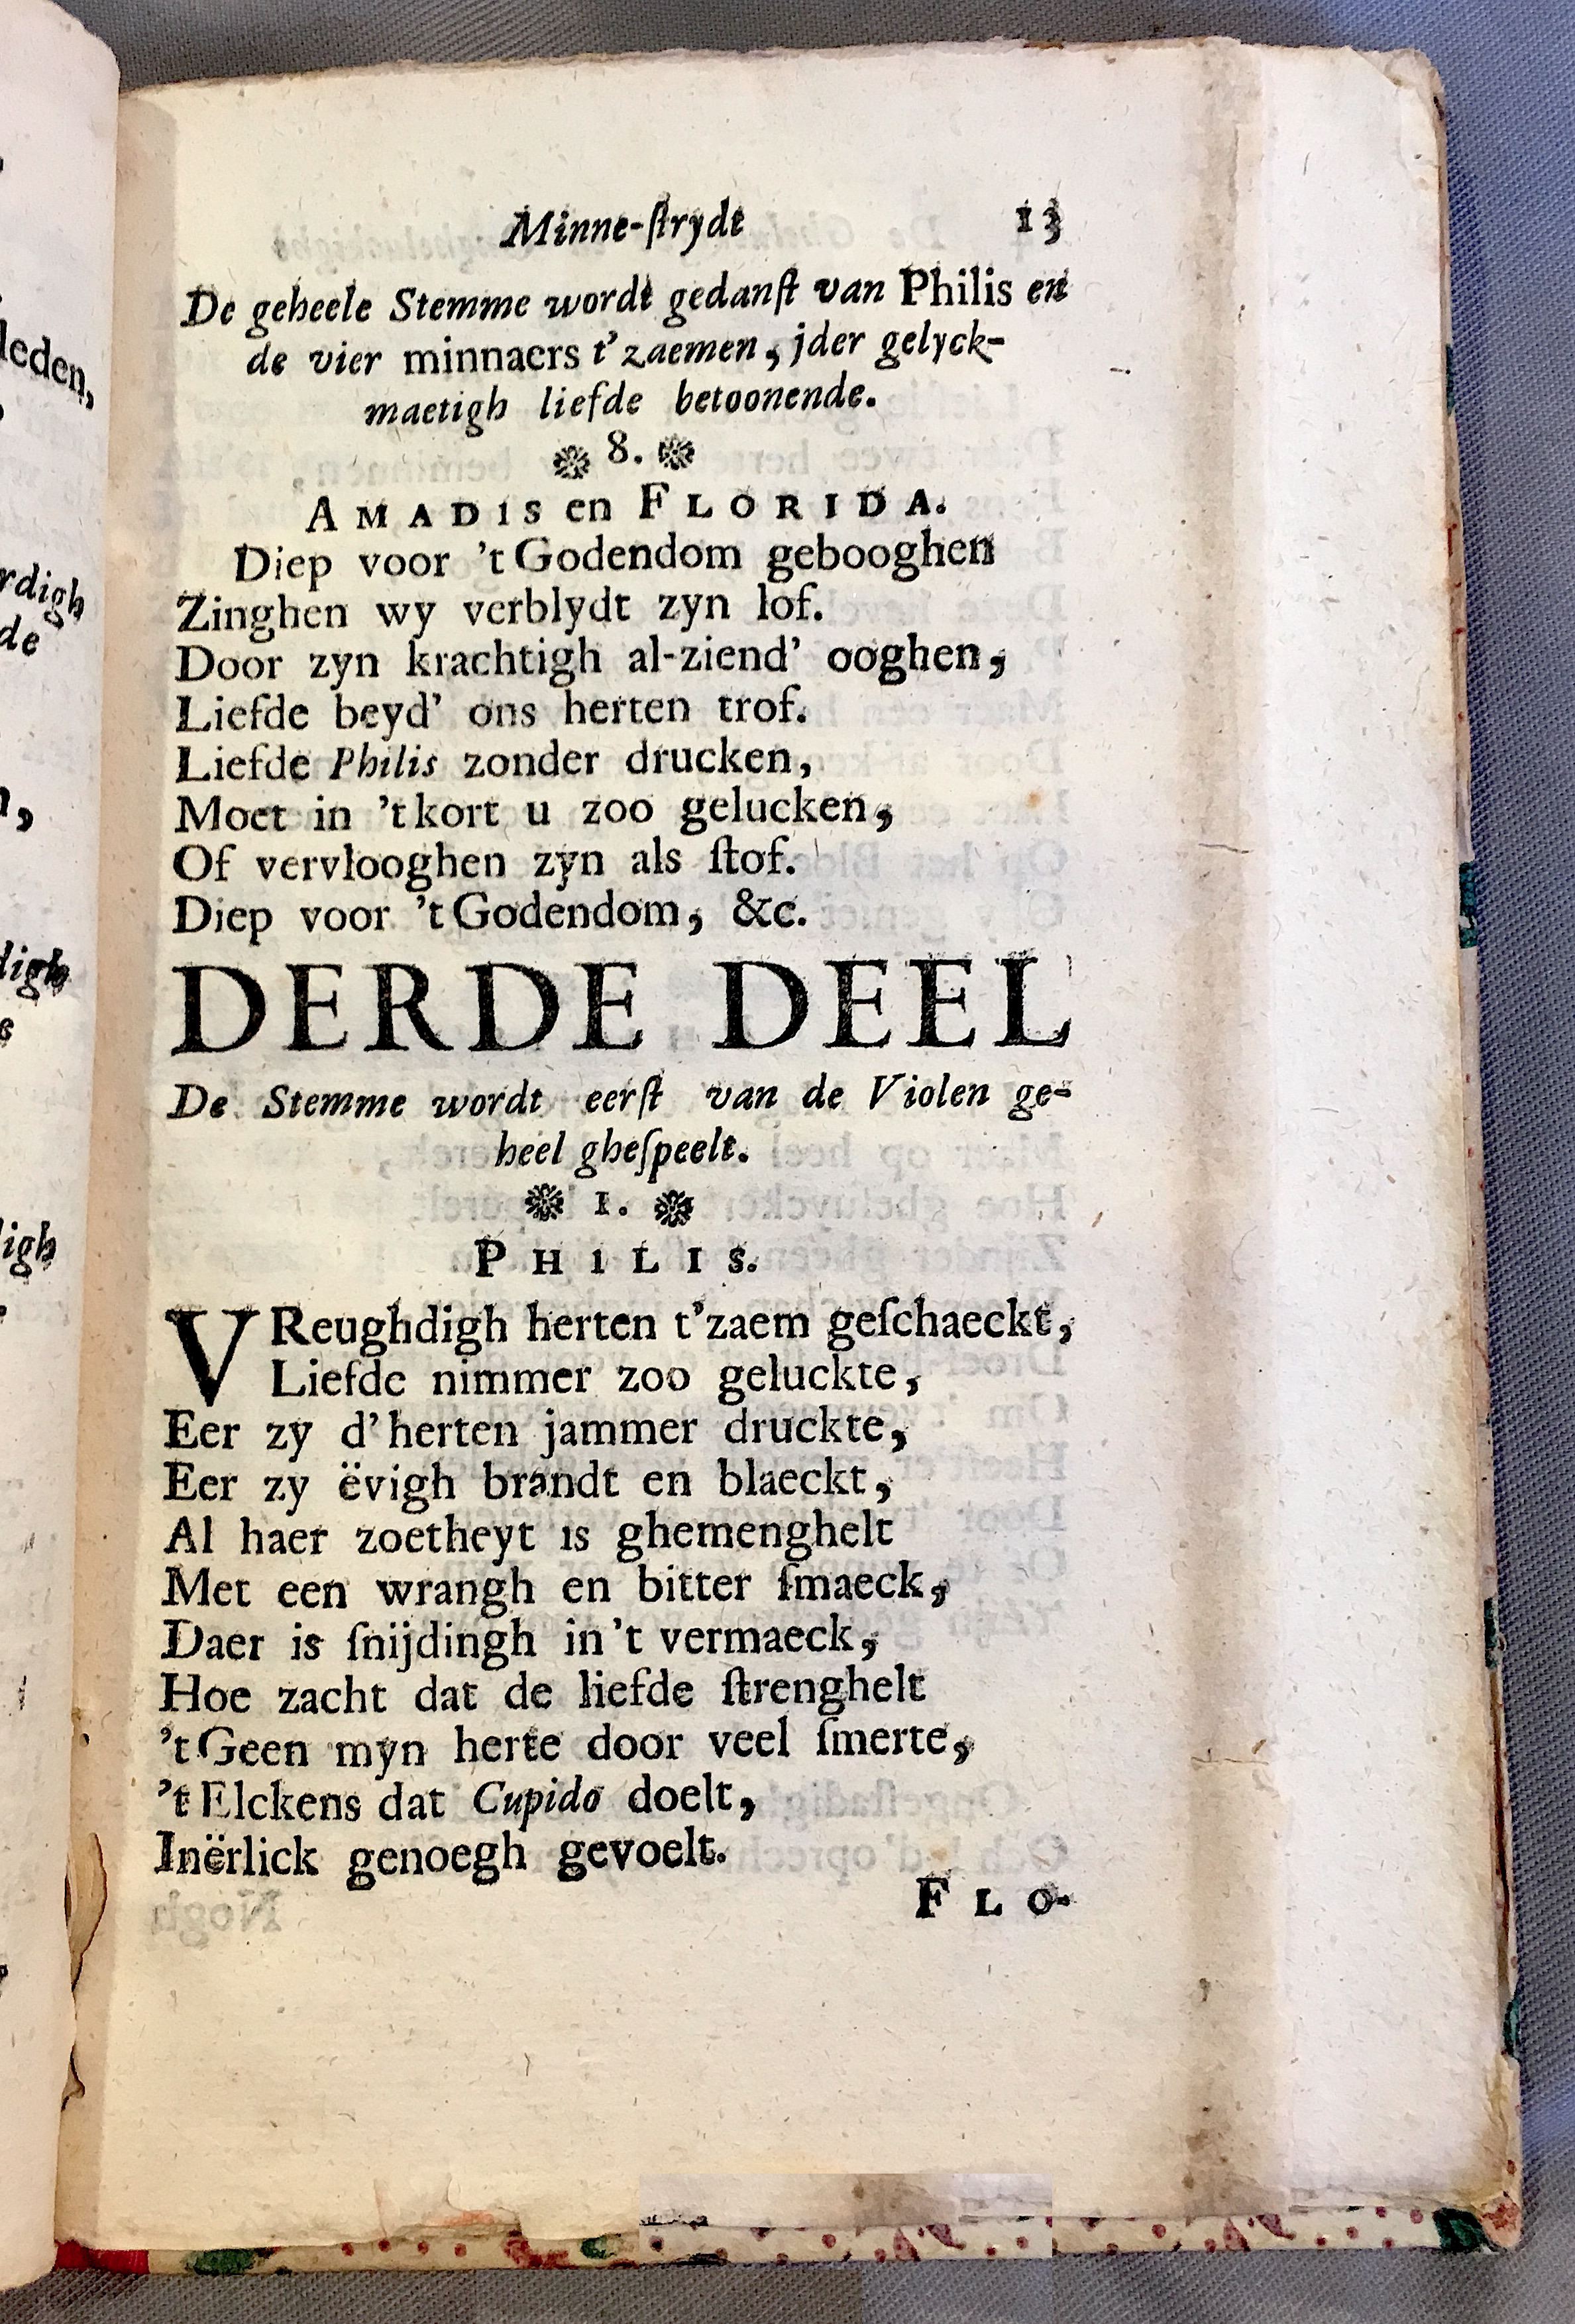 leden,
rdigh
de
n,
digh
e
ligh
e
Minne-ſtrydt 13
De geheele Stemme wordt gedanſt van Philis en
de vier minnaers t'zaemen, jder gelyck-
maetigh liefde betoonende.
8.
AMADIS en FLORIDA.
Diep voor 't Godendom gebooghen
Zinghen wy verblydt zyn lof.
Door zyn krachtigh al-ziend' ooghen,
Liefde beyd' ons herten trof.
Liefde Philis zonder drucken,
Moet in 't kort u zoo gelucken,
Of vervlooghen zyn als ſtof.
Diep voor 't Godendom, &c.
DERDE DEEL
De Stemme wordt eerſt van de Violen ge-
heel gheſpeelt.
1.
PHILIS.
VReughdigh herten t'zaem geſchaeckt,
Liefde nimmer zoo geluckte,
Eer zy d'herten jammer druckte,
Eer zy ëvigh brandt en blaeckt,
Al haer zoetheyt is ghemenghelt
Met een wrangh en bitter ſmaeck,
Daer is ſnijdingh in 't vermaeck,
Hoe zacht dat de liefde ſtrenghelt
't Geen myn herte door veel ſmerte,
't Elckens dat Cupido doelt,
Inërlick genoegh gevoelt.
FLO-